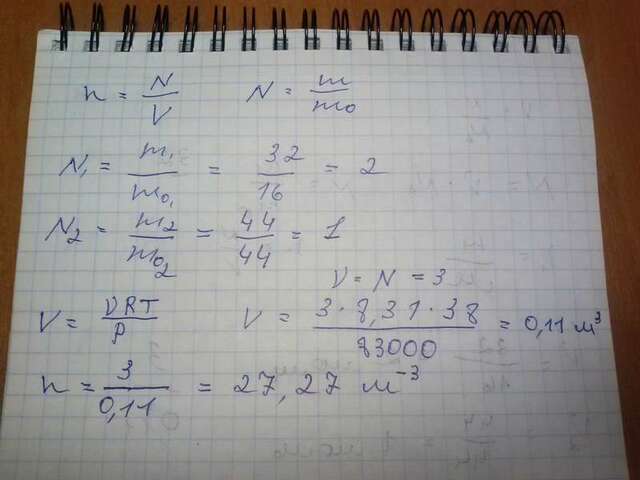 n = N/V N = m/m₀
N₁ = m₁/m₀₁ = 32/16 = 2
N₂ = m₂/m₀₂ = 44/44 = 1
ν = N = 3
V = νRT/P V = 3·8,31·38/83000 = 0,11 м³
n = 3/0,11 = 27,27 м⁻³